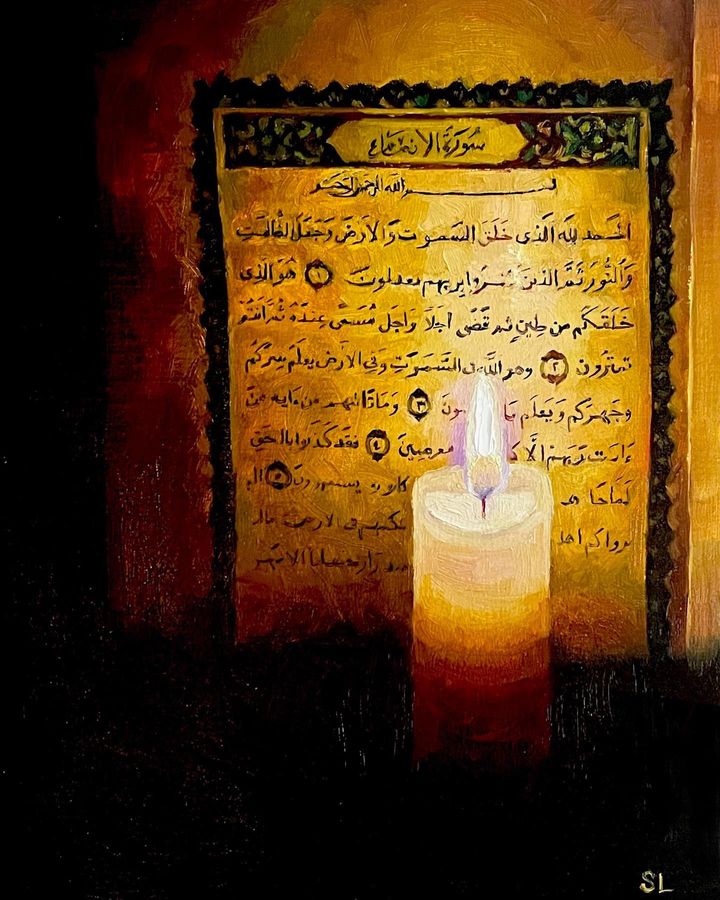 سُورَة الانعام
بسم الله الرحمن الرحيم
الحمد لله الذى خَلَقَ السَّمٰوٰت وَالارضَ وَجَعَلَ الظُّلُمَٰتِ
وَالنُّورَ ثُمَّ الذينَ كفَروا بربهم يعدلونَ ١ هُوَ الذى
خَلَقَكُم من طِينٍ ثم قَضَى اَجَلاً وَاجَل مُسَمًّى عِندَهُ ثُمَّ اَنتُم
تمترُونَ ٢ وهو اللَّه فى السَّمٰوٰتِ وَفِى الأرْضِ يعلَمُ سِركُم
وجَهركُم وَيَعلَم مَا ٣ وَمَا من ءايه مِّنْ
ءَايَٰتِ رَبِّهِمْ الَّا معرضِينَ ٤ فقد كَذَّبُوا بالحقِّ
لَمَّا جَا كانوا به ٥ الم
يرواكم اهل فى الارض مالم
الانهر
SL